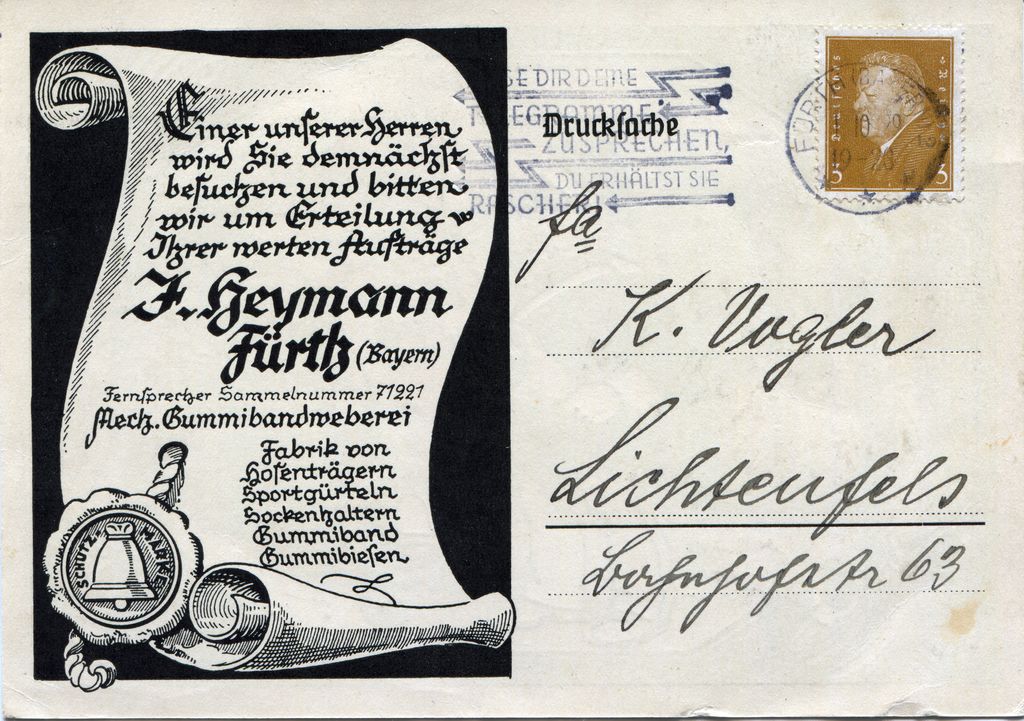 Einer unserer Herren
wird Sie demnächst
besuchen und bitten
wir um Erteilung
Ihrer werten Aufträge
J. Heymann
Fürth (Bayern)
Fernsprecher Sammelnummer 71221
Mech. Gummibandweberei
Fabrik von
Hosenträgern
Sportgürteln
Sockenhaltern
Gummiband
Gummibiesen
SCHUTZ MARKE
GE DIR DEINE
TELEGRAMME
ZUSPRECHEN,
DU ERHÄLTST SIE
RASCHER!
Drucksache
Deutsches Reich
3 3
FÜRTH
19-20
Fa
K. Vogler
Lichtenfels
Bahnhofstr 63